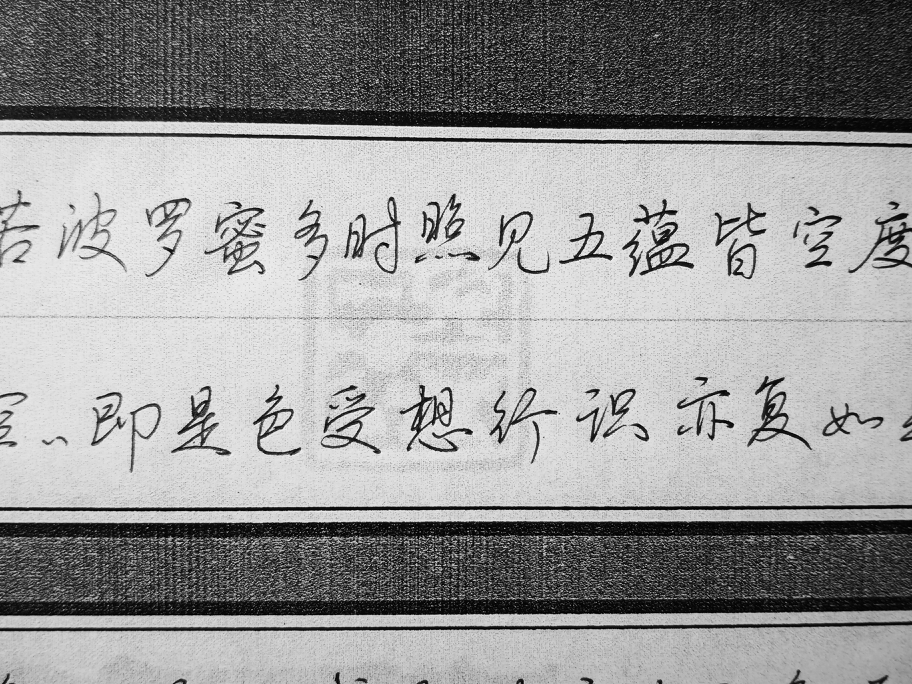 若波罗蜜多时照见五蕴皆空度
空:即是色受想行识亦复如